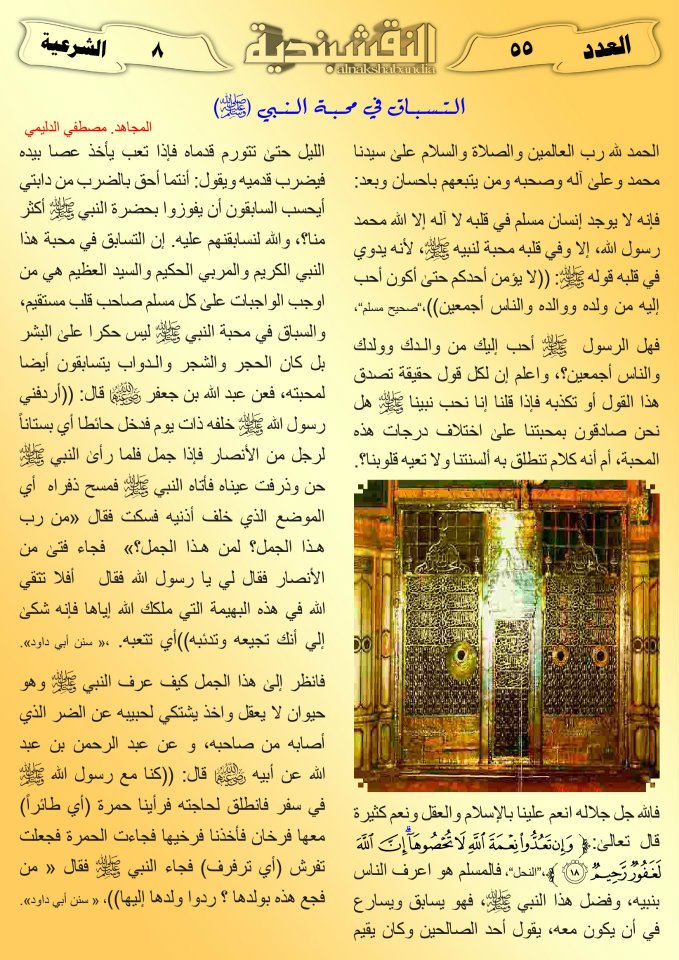 العدد
٥٥
النقشبندية
alnakshabandia
٨
الشرعية
التسباق في محبة النبي (ﷺ)
المجاهد. مصطفي الدليمي
الحمد لله رب العالمين والصلاة والسلام على سيدنا
محمد وعلى آله وصحبه ومن يتبعهم باحسان وبعد:
فإنه لا يوجد إنسان مسلم في قلبه لا آله إلا الله محمد
رسول الله، إلا وفي قلبه محبة لنبيه ﷺ، لأنه يدوي
في قلبه قوله ﷺ: ((لا يؤمن أحدكم حتىٰ أكون أحب
إليه من ولده ووالده والناس أجمعين))،"صحيح مسلم"،
فهل الرسول ﷺ أحب إليك من والدك وولدك
والناس أجمعين؟، واعلم إن لكل قول حقيقة تصدق
هذا القول أو تكذبه فإذا قلنا إنا نحب نبينا ﷺ هل
نحن صادقون بمحبتنا علىٰ اختلاف درجات هذه
المحبة، أم أنه كلام تنطلق به ألسنتنا ولا تعيه قلوبنا؟.
فالله جل جلاله انعم علينا بالإسلام والعقل ونعم كثيرة
قال تعالىٰ:﴿ وَإِن تَعُدُّوا۟ نِعْمَةَ ٱللَّهِ لَا تُحْصُوهَآ ۗ إِنَّ ٱللَّهَ
لَغَفُورٌ رَّحِيمٌ ١٨ ﴾،"النحل"، فالمسلم هو اعرف الناس
بنبيه، وفضل هذا النبي ﷺ، فهو يسابق ويسارع
في أن يكون معه، يقول أحد الصالحين وكان يقيم
الليل حتىٰ تتورم قدماه فإذا تعب يأخذ عصا بيده
فيضرب قدميه ويقول: أنتما أحق بالضرب من دابتي
أيحسب السابقون أن يفوزوا بحضرة النبي ﷺ أكثر
منا؟، والله لنسابقنهم عليه. إن التسابق في محبة هذا
النبي الكريم والمربي الحكيم والسيد العظيم هي من
اوجب الواجبات علىٰ كل مسلم صاحب قلب مستقيم،
والسباق في محبة النبي ﷺ ليس حكرا علىٰ البشر
بل كان الحجر والشجر والدواب يتسابقون أيضا
لمحبته، فعن عبد الله بن جعفر رضي الله عنهما قال: ((أردفني
رسول الله ﷺ خلفه ذات يوم فدخل حائطا أي بستاناً
لرجل من الأنصار فإذا جمل فلما رأىٰ النبي ﷺ
حن وذرفت عيناه فأتاه النبي ﷺ فمسح ذفراه أي
الموضع الذي خلف أذنيه فسكت فقال «من رب
هذا الجمل؟ لمن هذا الجمل؟» فجاء فتىٰ من
الأنصار فقال لي يا رسول الله فقال أفلا تتقي
الله في هذه البهيمة التي ملكك الله إياها فإنه شكىٰ
إلي أنك تجيعه وتدئبه))أي تتعبه. ،« سنن أبي داود».
فانظر إلىٰ هذا الجمل كيف عرف النبي ﷺ وهو
حيوان لا يعقل واخذ يشتكي لحبيبه عن الضر الذي
أصابه من صاحبه، و عن عبد الرحمن بن عبد
الله عن أبيه قال: ((كنا مع رسول الله ﷺ
في سفر فانطلق لحاجته فرأينا حمرة (أي طائراً)
معها فرخان فأخذنا فرخيها فجاءت الحمرة فجعلت
تفرش (أي ترفرف) فجاء النبي ﷺ فقال « من
فجع هذه بولدها ؟ ردوا ولدها إليها))، « سنن أبي داود».